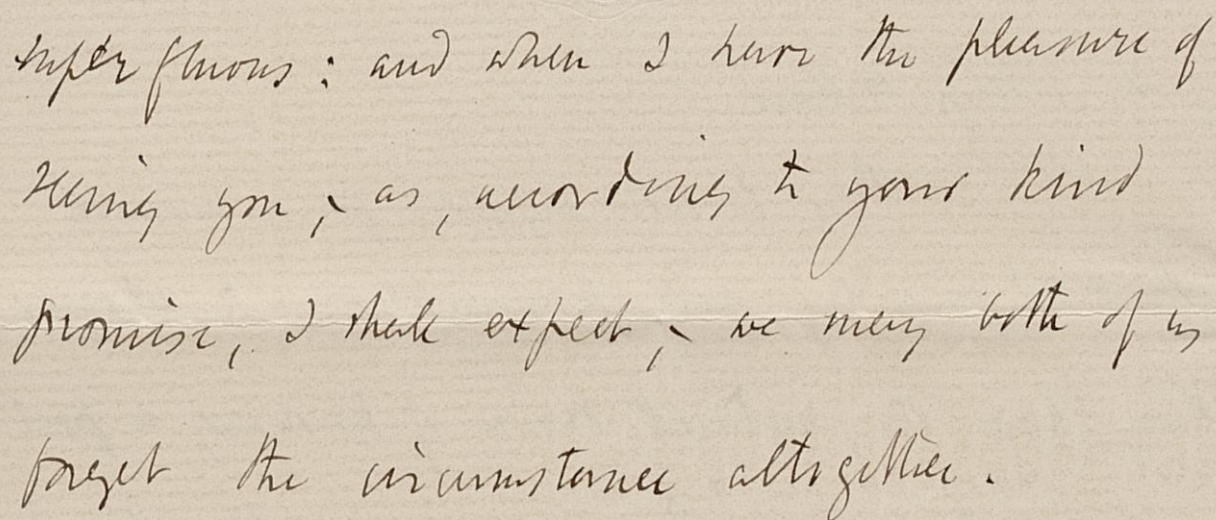 superfluous : and when I have the pleasure of
seeing you, - as, according to your kind
promise, I shall expect, - we may both of us
forget the circumstance altogether.